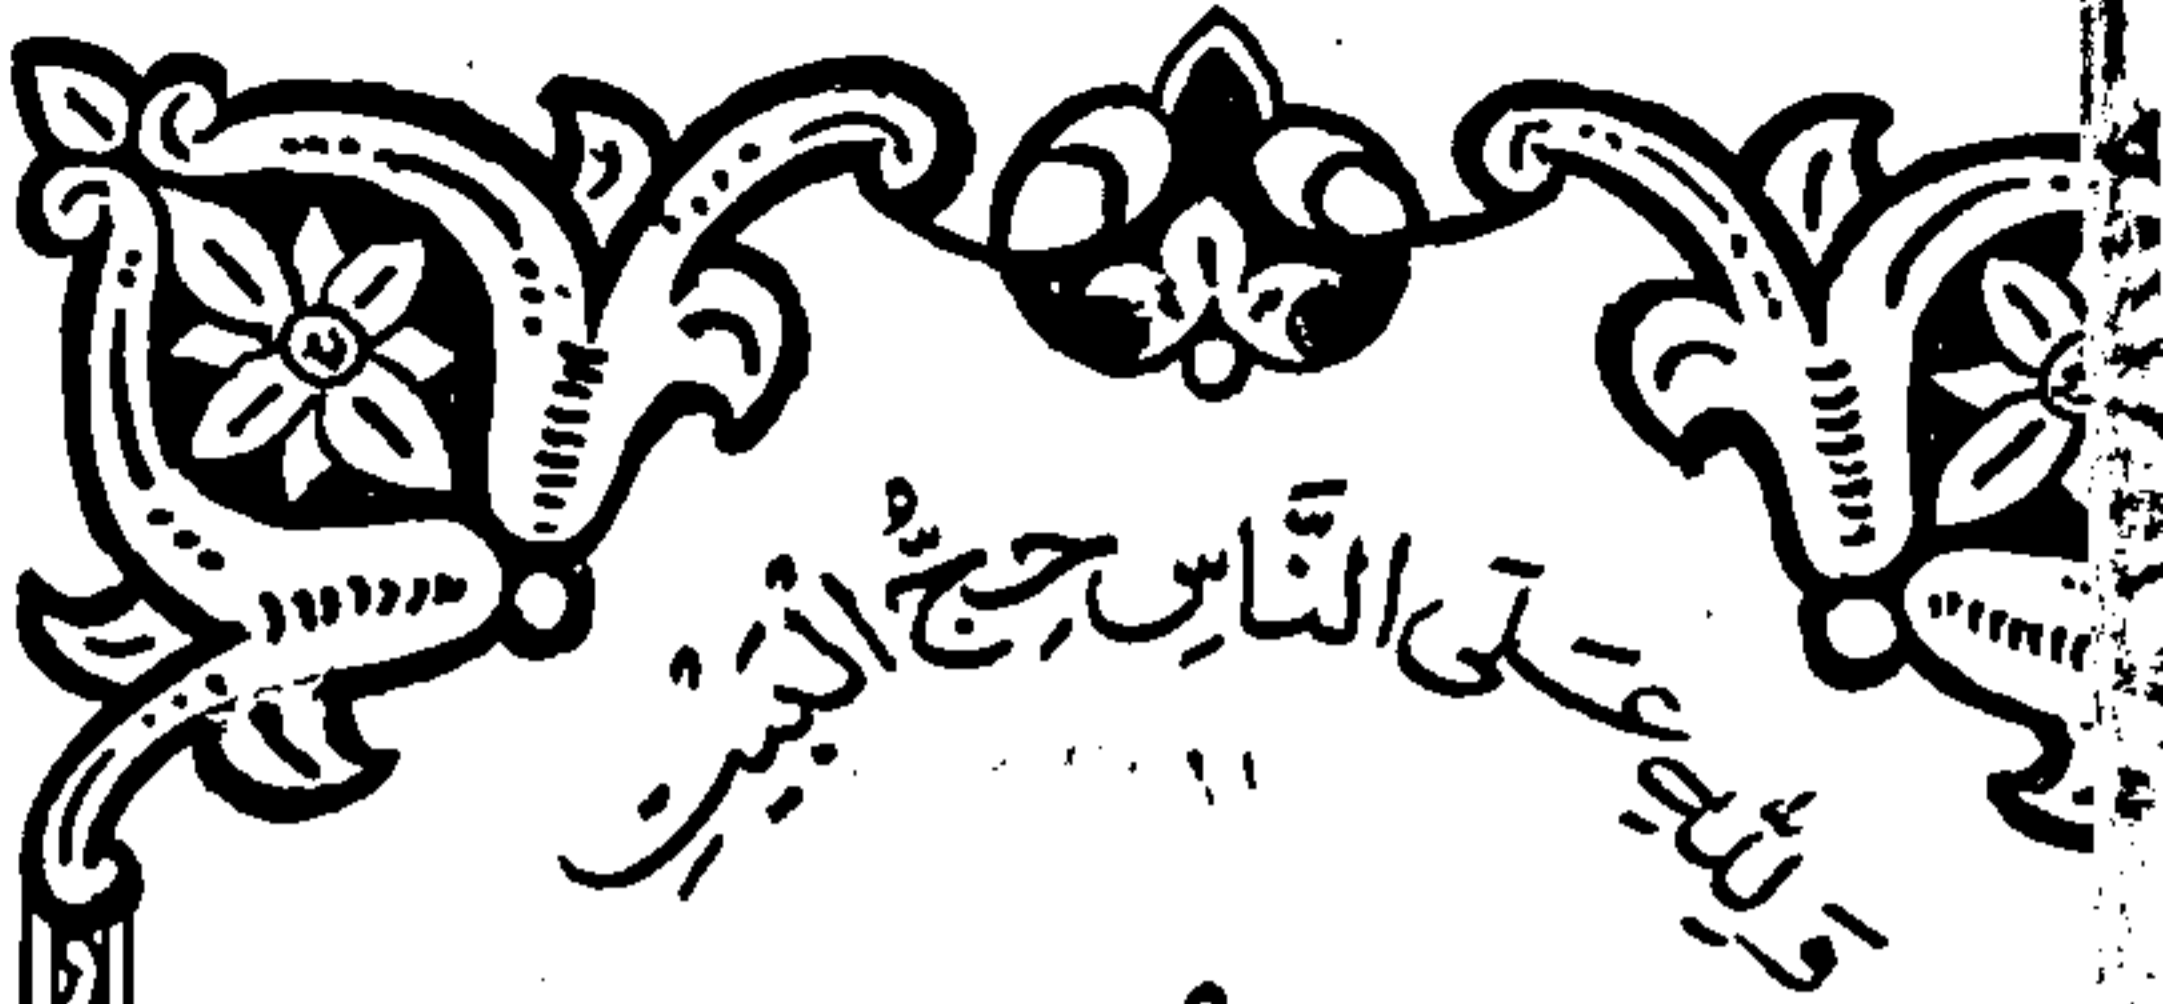 وَلِلَّهِ عَلَى النَّاسِ حِجُّ الْبَيْتِ